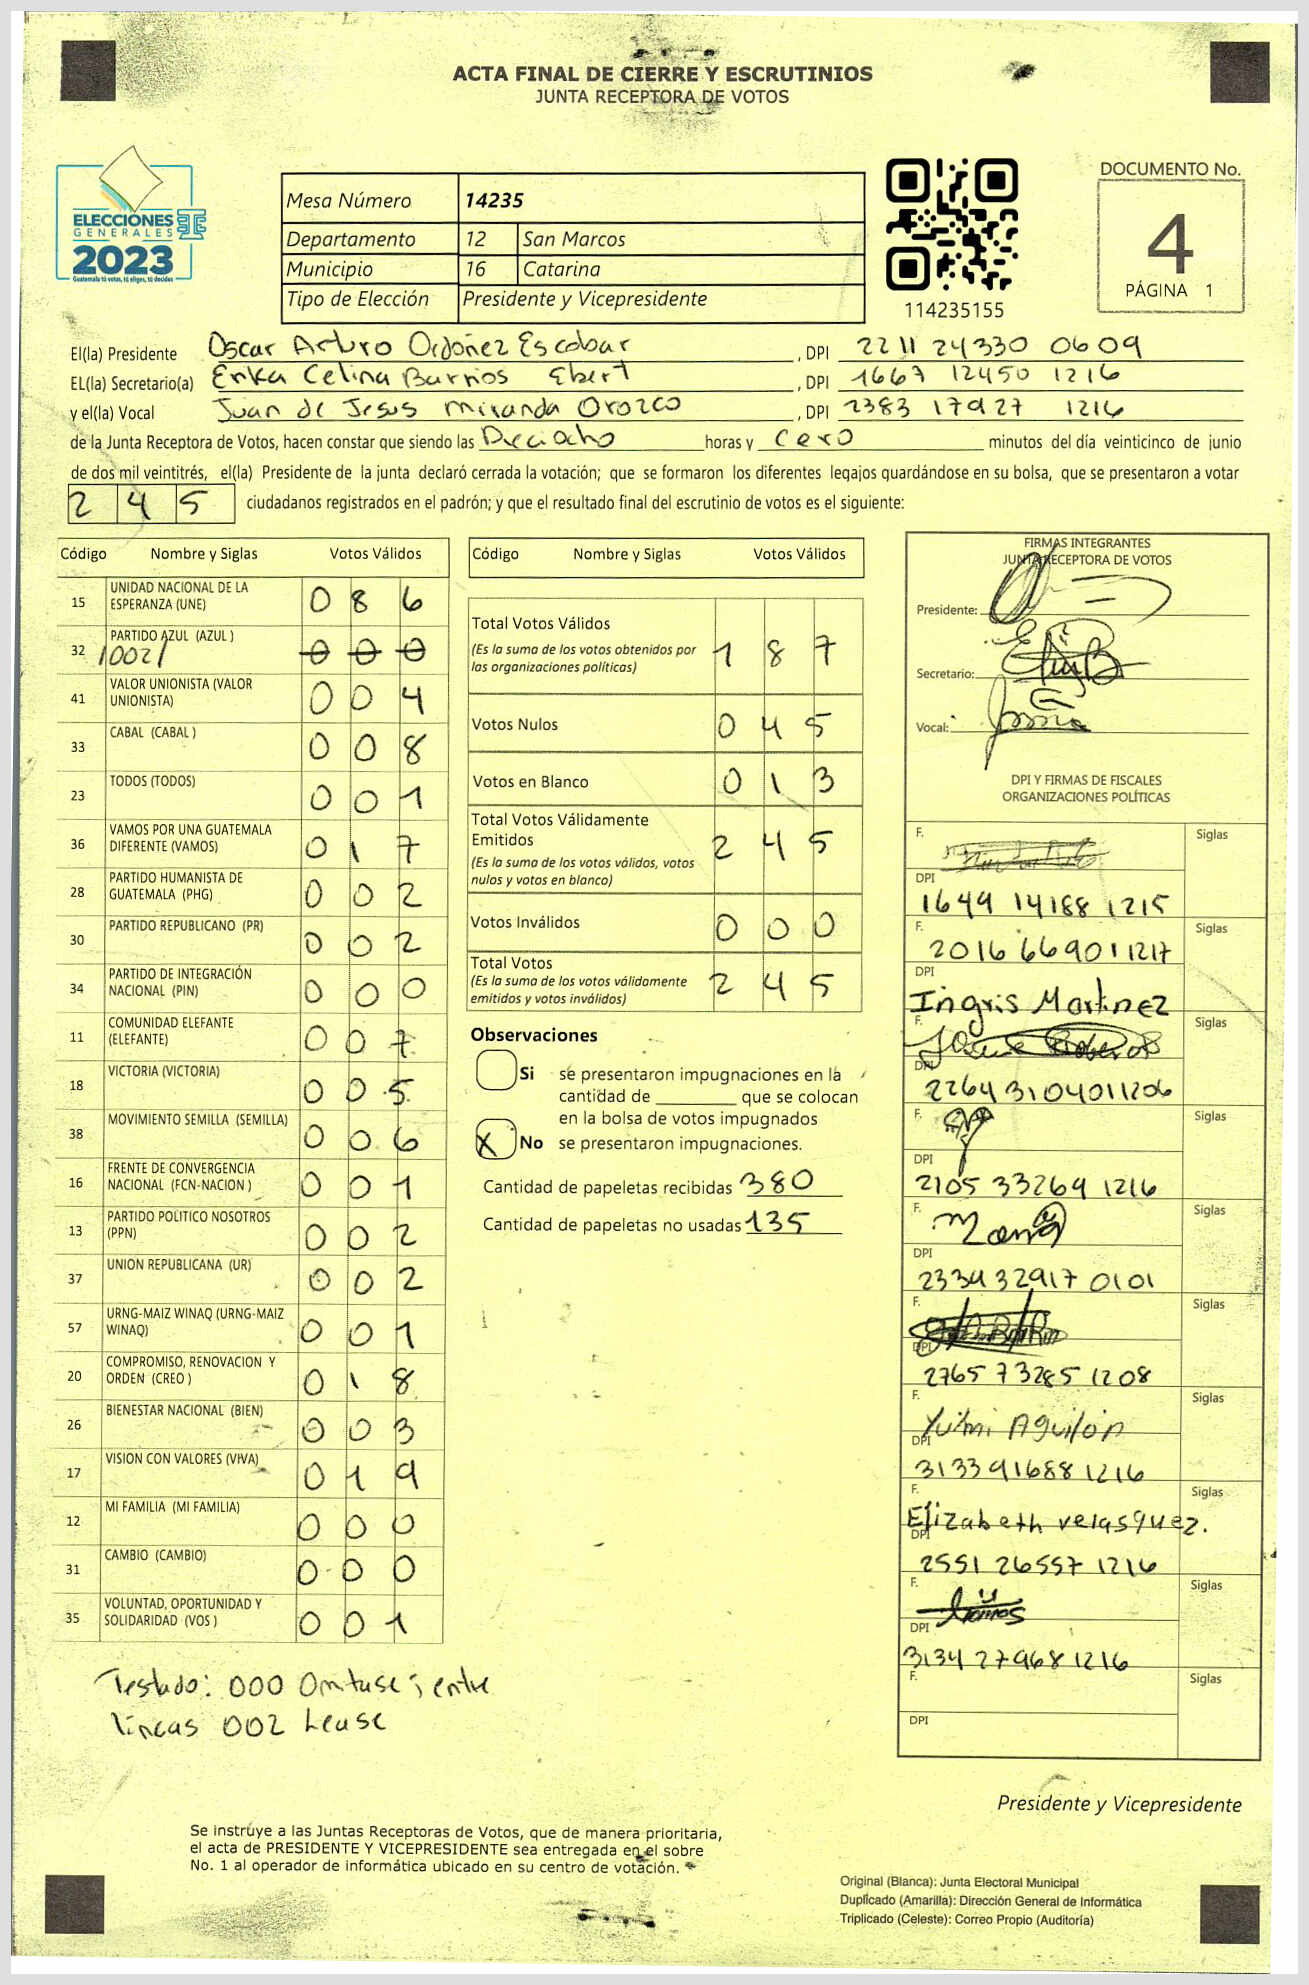 ACTA FINAL DE CIERRE Y ESCRUTINIOS
JUNTA RECEPTORA DE VOTOS
ELECCIONES
GENERALES
2023
Guatemala tú votas, tú eliges, tú decides
Mesa Número 14235
Departamento 12 San Marcos
Municipio 16 Catarina
Tipo de Elección Presidente y Vicepresidente
114235155
DOCUMENTO No.
4
PÁGINA 1
El(la) Presidente Oscar Arturo Ordoñez Escobar, DPI 2211 24330 0609
EL(la) Secretario(a) Erika Celina Barrios Ebert, DPI 1667 12450 1216
y el(la) Vocal Juan de Jesus Miranda Orozco, DPI 2383 17927 1216
de la Junta Receptora de Votos, hacen constar que siendo las Dieciocho horas y cero minutos del día veinticinco de junio
de dos mil veintitrés, el(la) Presidente de la junta declaró cerrada la votación; que se formaron los diferentes legajos guardándose en su bolsa, que se presentaron a votar
245 ciudadanos registrados en el padrón; y que el resultado final del escrutinio de votos es el siguiente:
Código Nombre y Siglas Votos Válidos
15 UNIDAD NACIONAL DE LA ESPERANZA (UNE) 086
32 PARTIDO AZUL (AZUL ) 000
/002/
41 VALOR UNIONISTA (VALOR UNIONISTA) 004
33 CABAL (CABAL ) 008
23 TODOS (TODOS) 001
36 VAMOS POR UNA GUATEMALA DIFERENTE (VAMOS) 017
28 PARTIDO HUMANISTA DE GUATEMALA (PHG) 002
30 PARTIDO REPUBLICANO (PR) 002
34 PARTIDO DE INTEGRACIÓN NACIONAL (PIN) 000
11 COMUNIDAD ELEFANTE (ELEFANTE) 007
18 VICTORIA (VICTORIA) 005
38 MOVIMIENTO SEMILLA (SEMILLA) 006
16 FRENTE DE CONVERGENCIA NACIONAL (FCN-NACION ) 001
13 PARTIDO POLITICO NOSOTROS (PPN) 002
37 UNION REPUBLICANA (UR) 002
57 URNG-MAIZ WINAQ (URNG-MAIZ WINAQ) 001
20 COMPROMISO, RENOVACION Y ORDEN (CREO ) 018
26 BIENESTAR NACIONAL (BIEN) 003
17 VISION CON VALORES (VIVA) 019
12 MI FAMILIA (MI FAMILIA) 000
31 CAMBIO (CAMBIO) 000
35 VOLUNTAD, OPORTUNIDAD Y SOLIDARIDAD (VOS ) 001
Testado: 000 Omitase; entre
lineas 002 Lease
Código Nombre y Siglas Votos Válidos
Total Votos Válidos 187
(Es la suma de los votos obtenidos por
las organizaciones políticas)
Votos Nulos 045
Votos en Blanco 013
Total Votos Válidamente
Emitidos 245
(Es la suma de los votos válidos, votos
nulos y votos en blanco)
Votos Inválidos 000
Total Votos 245
(Es la suma de los votos válidamente
emitidos y votos inválidos)
Observaciones
Si se presentaron impugnaciones en la
cantidad de ________ que se colocan
en la bolsa de votos impugnados
X No se presentaron impugnaciones.
Cantidad de papeletas recibidas 380
Cantidad de papeletas no usadas 135
FIRMAS INTEGRANTES
JUNTA RECEPTORA DE VOTOS
Presidente:
Secretario:
Vocal:
DPI Y FIRMAS DE FISCALES
ORGANIZACIONES POLÍTICAS
F. Siglas
DPI
1649 14188 1215
F. Siglas
2016 66901 1217
DPI
Ingris Martinez
F. Siglas
DPI
2264 31040 11206
F. Siglas
DPI
2105 33269 1216
F. Siglas
DPI
2334 32917 0101
F. Siglas
DPI
2765 73285 1208
F. Siglas
Yulmi Aguilón
DPI
3133 91688 1216
F. Siglas
Elizabeth velasquez.
DPI
2551 26557 1216
F. Siglas
DPI
3134 27968 1216
F. Siglas
DPI
Presidente y Vicepresidente
Se instruye a las Juntas Receptoras de Votos, que de manera prioritaria,
el acta de PRESIDENTE Y VICEPRESIDENTE sea entregada en el sobre
No. 1 al operador de informática ubicado en su centro de votación.
Original (Blanca): Junta Electoral Municipal
Duplicado (Amarilla): Dirección General de Informática
Triplicado (Celeste): Correo Propio (Auditoría)